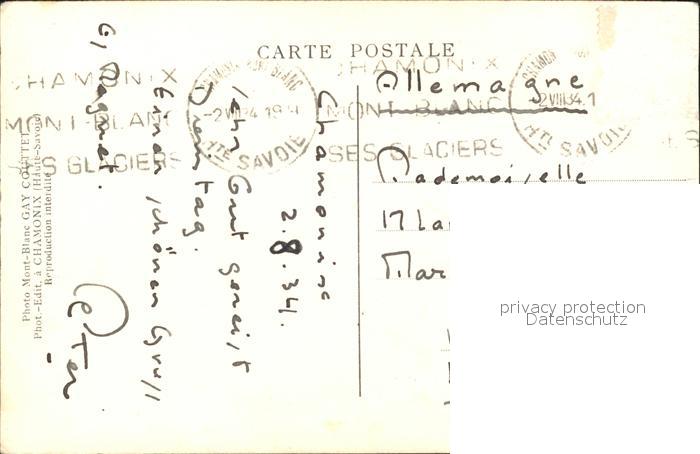 CARTE POSTALE
CHAMONIX
MONT-BLANC
SES GLACIERS
CHAMONIX MONT-BLANC
-2 VIII 34
HTE SAVOIE
CHAMONIX
MONT-BLANC
SES GLACIERS
-2 VIII 34
HTE SAVOIE
Chamonix
2.8.34.
sehr Gut gereist
Dienstag.
Einen schönen Gruss
Allemagne
Mademoiselle
Mar
Photo Mont-Blanc GAY COUTTET
Phot.-Edit. à CHAMONIX (Haute-Savoie)
Reproduction interdite
privacy protection
Datenschutz